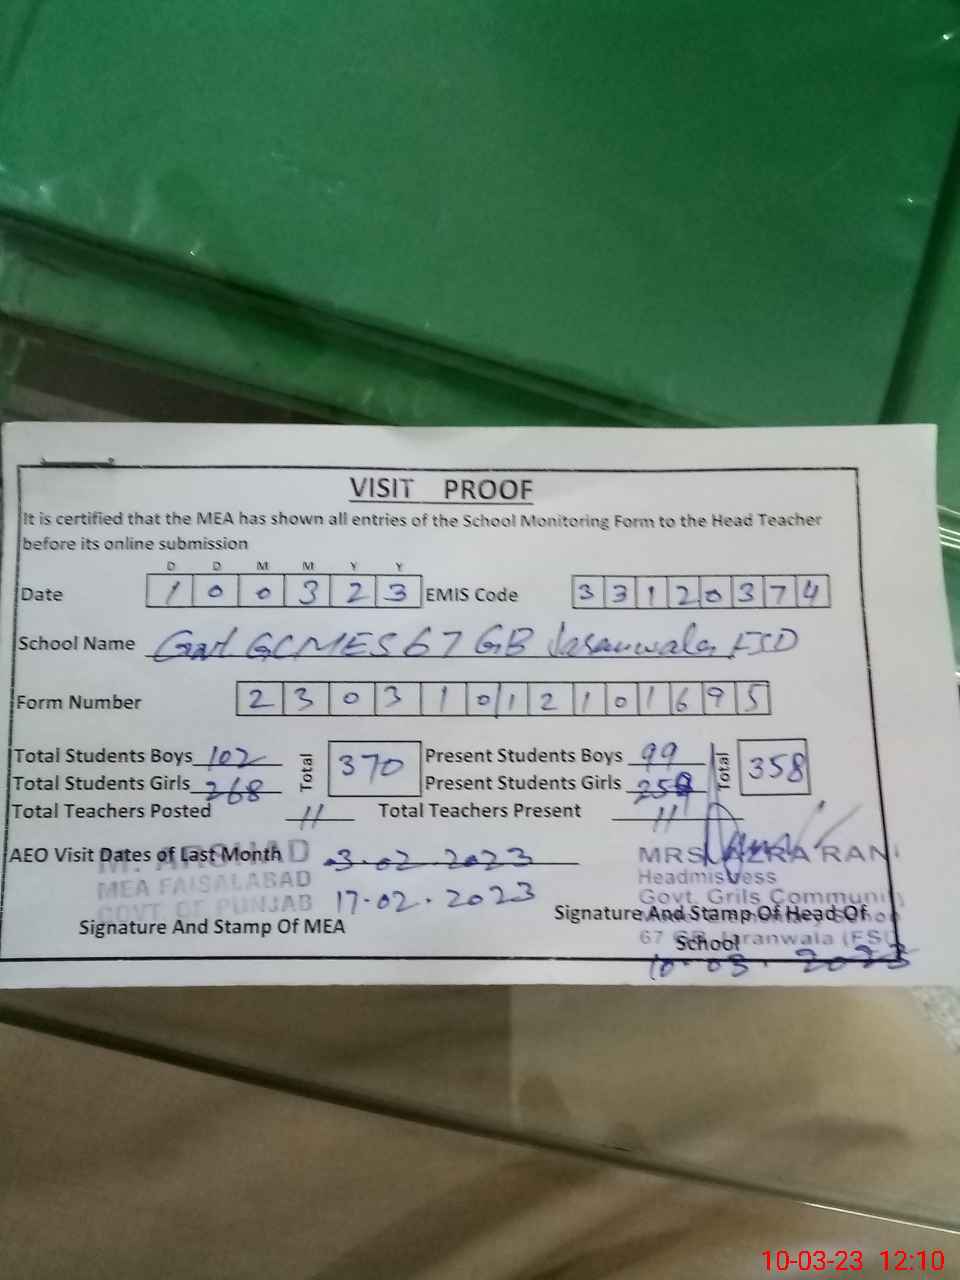 VISIT PROOF
It is certified that the MEA has shown all entries of the School Monitoring Form to the Head Teacher
before its online submission
D D M M Y Y
Date 1 0 0 3 2 3 EMIS Code 3 3 1 2 0 3 7 4
School Name Govt GCMES 67 GB Jaranwala FSD
Form Number 2 3 0 3 1 0 1 2 1 0 1 6 9 5
Total Students Boys 102 Total 370 Present Students Boys 99 Total 358
Total Students Girls 268 Present Students Girls 259
Total Teachers Posted 11 Total Teachers Present 11
AEO Visit Dates of Last Month 03.02.2023
17.02.2023
M. ARSHAD
MEA FAISALABAD
GOVT. OF PUNJAB
Signature And Stamp Of MEA
MRS. AZRA RANI
Headmistress
Govt. Grils Community
67 GB Jaranwala (FSD
Signature And Stamp Of Head Of
School
10-03-2023
10-03-23 12:10